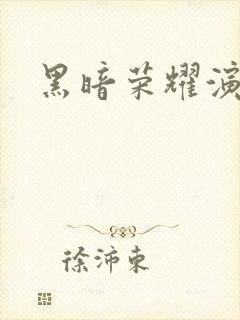 黑暗荣耀演
徐沛東